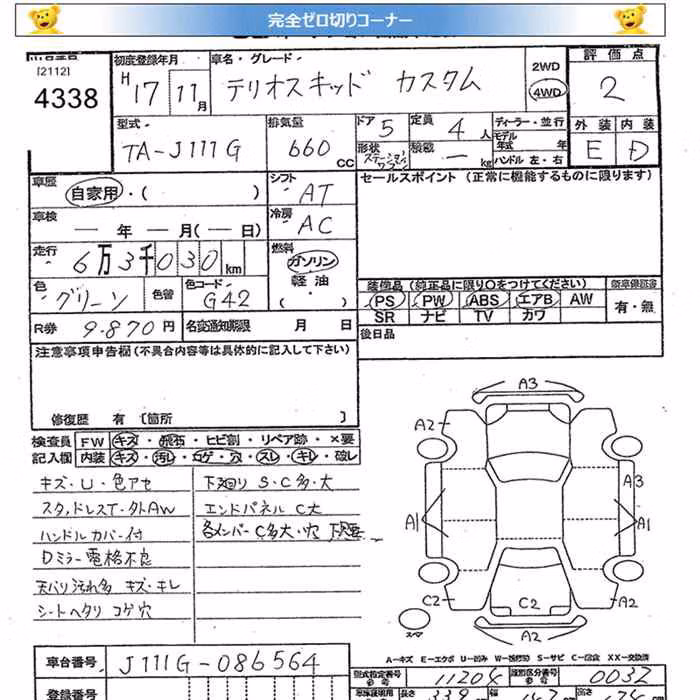 完全ゼロ切りコーナー
[2112]
4338
初度登録年月
H 17 11月
車名・グレード
テリオスキッド カスタム
2WD
4WD
評価点
2
型式
TA-J111G
排気量
660 CC
ドア 5
形状
定員 4人
積載 ― kg
ディーラー・並行
モデル年式 年
ハンドル 左・右
外装 内装
E D
車歴
自家用・( )
シフト AT
セールスポイント (正常に機能するものに限ります)
車検
― 年 ― 月(― 日)
冷房 AC
走行
6万3千030km
燃料
ガソリン
軽油
・( )
色
グリーン
色替
色コード
G42
装備品 (純正品に限り○をつけてください)
PS PW ABS エアB AW
SR ナビ TV カワ
有・無
R券 9.870円
名変通知期限 月 日
後日品
注意事項申告欄 (不具合内容等は具体的に記入して下さい)
修復歴 有 [箇所 ]
検査員 FW キズ・飛石・ヒビ割・リペア跡・×要
記入欄 内装 キズ・汚レ・コゲ・穴・スレ・キレ・破レ
キズ・U・色アセ
スタッドレスT・外AW
ハンドルカバー付
Dミラー電格不良
天バリ汚れ多 キズ・キレ
シートヘタリ コゲ穴
下廻り S・C多・大
エンドパネル C大
各メンバー C多大・穴
A3
A2
A3
A1
A1
C2
C2
A2
スペア
A2
A-キズ E-エクボ U-凹み W-補修跡 S-サビ C-腐食 XX-交換済
車台番号 J111G-086564
型式指定番号 11204
類別区分番号 0032
登録番号
長さ 339
幅 147
高さ